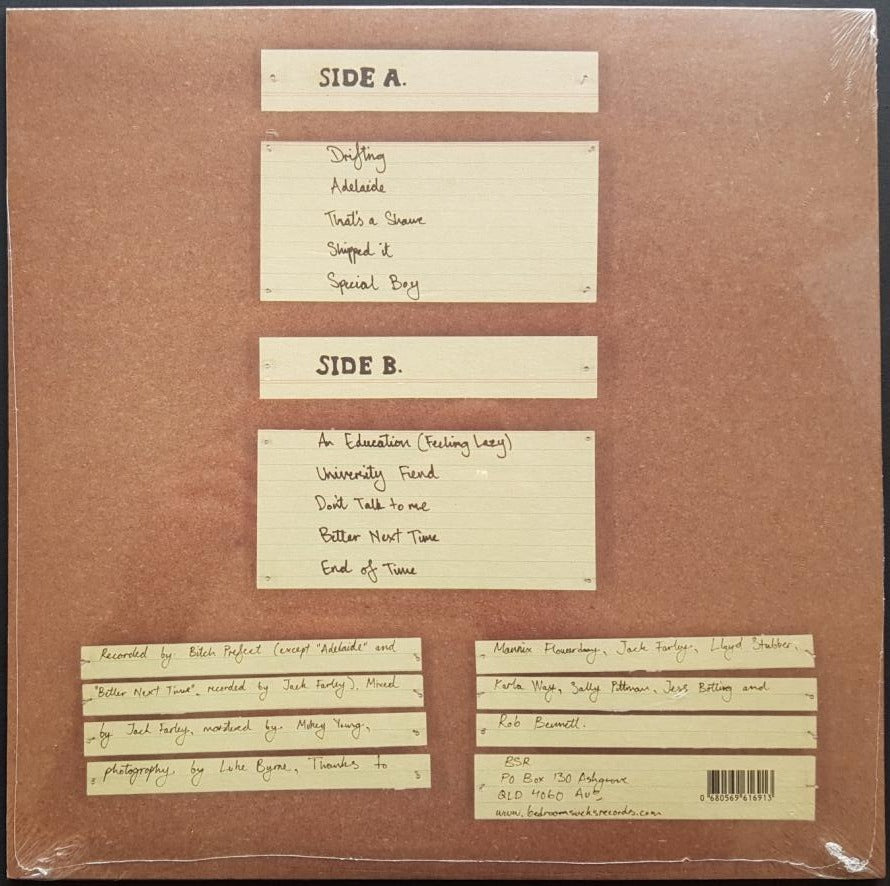 SIDE A.
Drifting
Adelaide
That's a Shame
Shipped it
Special Boy
SIDE B.
An Education (Feeling Lazy)
University Fiend
Don't Talk to me
Better Next Time
End of Time
Recorded by Bitch Prefect (except "Adelaide" and
"Better Next Time", recorded by Jack Farley). Mixed
by Jack Farley, mastered by Mikey Young,
photography by Luke Byrne, Thanks to
Mannix Flowerday, Jack Farley, Lloyd Stubber,
Karla Way, Sally Pittman, Jess Botting and
Rob Bennett.
BSR
PO Box 130 Ashgrove
QLD 4060 Aus,
www.bedroomsucksrecords.com
0 680569 616913